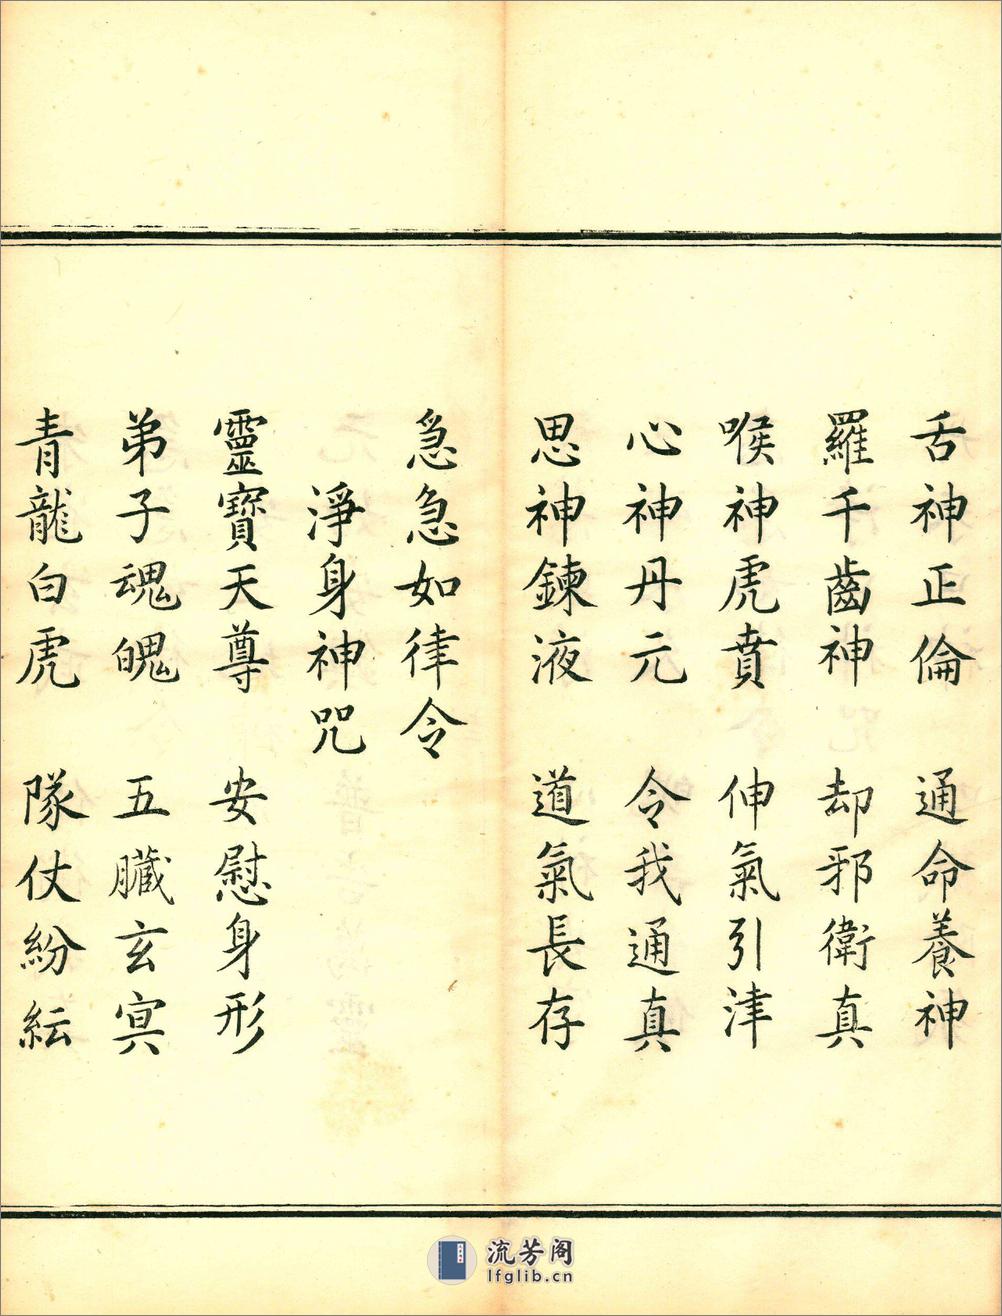 舌神正倫 通命養神
羅千齒神 却邪衛真
喉神虎賁 伸氣引津
心神丹元 令我通真
思神鍊液 道氣長存
急急如律令
淨身神咒
靈寶天尊 安慰身形
弟子魂魄 五臟玄冥
青龍白虎 隊仗紛紜
流芳阁
lfglib.cn